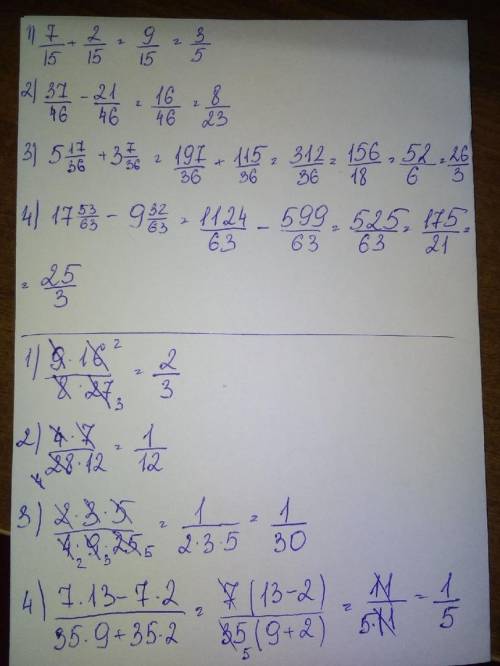 1) 7/15 + 2/15 = 9/15 = 3/5
2) 37/46 - 21/46 = 16/46 = 8/23
3) 5 17/36 + 3 7/36 = 197/36 + 115/36 = 312/36 = 156/18 = 52/6 = 26/3
4) 17 53/63 - 9 32/63 = 1124/63 - 599/63 = 525/63 = 175/21 =
= 25/3
1) 9·16 2 / 8·27 3 = 2/3
2) 4·7 / 4 28·12 = 1/12
3) 2·3·5 / 4 2·9 3·25 5 = 1/2·3·5 = 1/30
4) 7·13-7·2 / 35·9+35·2 = 7(13-2) / 35 5(9+2) = 11/5·11 = 1/5